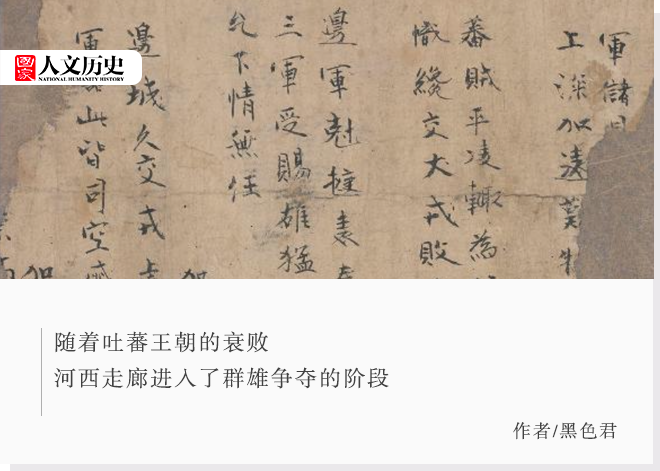 軍儲
工深加遠莫
蕃賊平凌輙為
幟纔交犬戎敗
邊軍尅捷表
三軍受賜雄猛
允下情無任
邊城久交戎
軍 此皆司空
加
國家人文历史
NATIONAL HUMANITY HISTORY
随着吐蕃王朝的衰败
河西走廊进入了群雄争夺的阶段
作者/黑色君